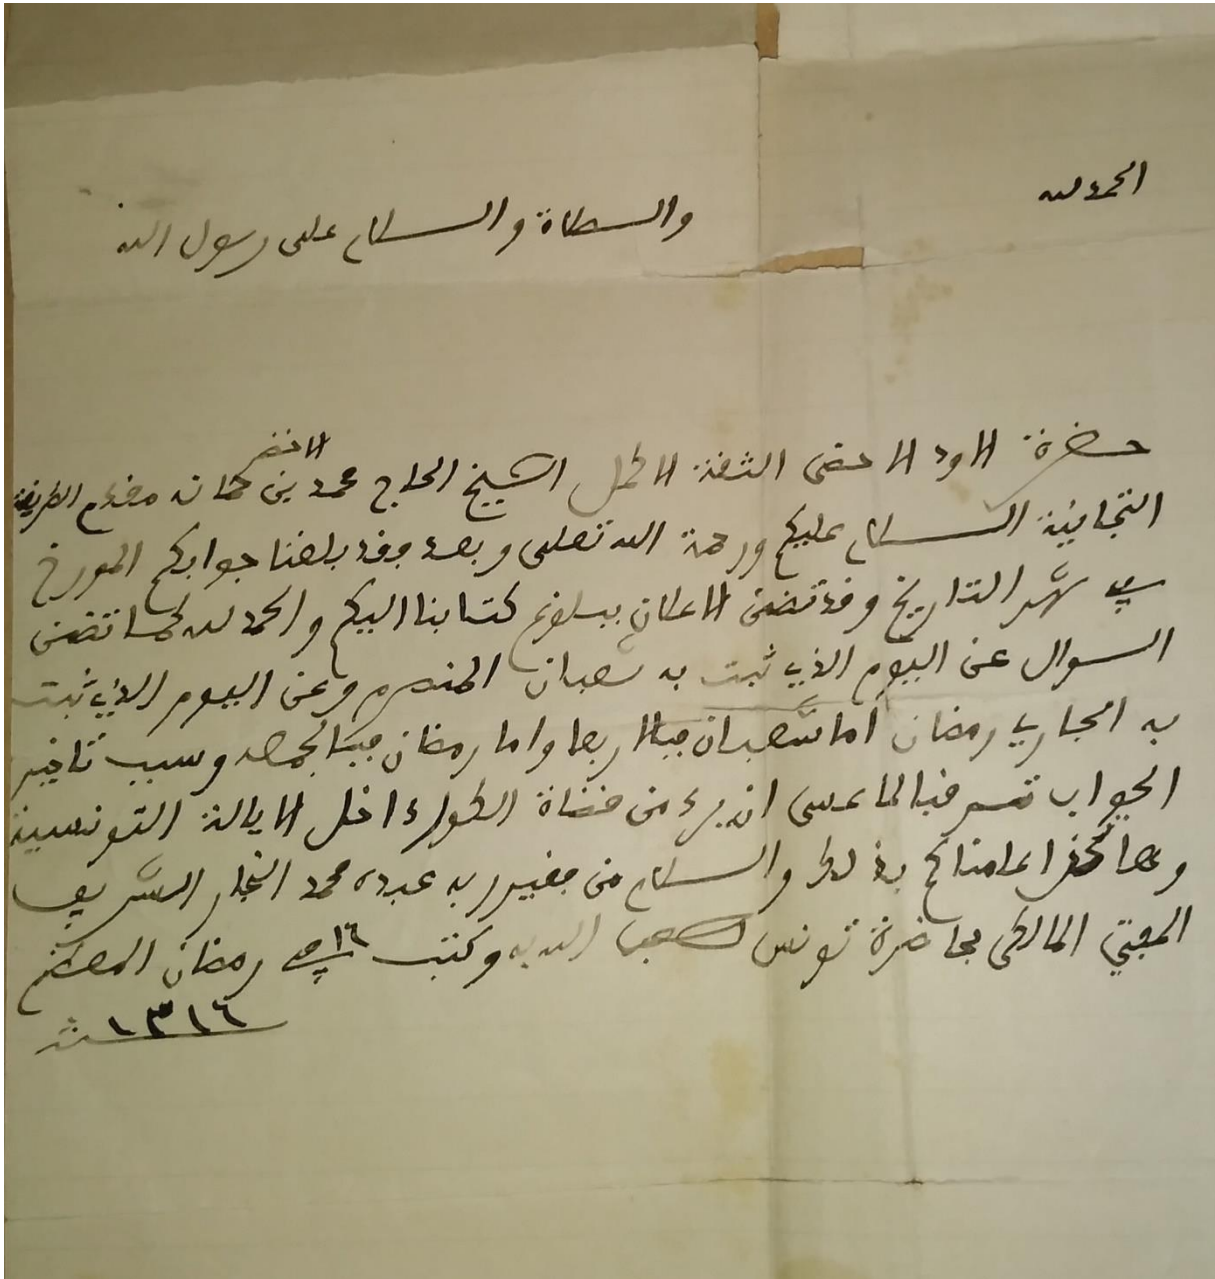 الحمد لله
والصلاة والسلام على رسول الله
الاخضر
حضرة الاود الاحضى الثقة الاكمل الشيخ الحاج محمد بن حمانه مقدم الطريقة
التجانية السلام عليكم ورحمة الله تعلى وبعد فقد بلغنا جوابكم المورخ
في شهر التاريخ وقد تضمن الاعلان ببلوغ كتابنا اليكم والحمد لله كما تضمن
السوال عن اليوم الذي ثبت به شعبان المنصرم وعن اليوم الذي ثبت
به الجاري رمضان اما شعبان فبالاربعا واما رمضان فبالجمعه وسبب تاخير
الجواب ترقبا لما عسى ان يرد من قضاة الكور داخل الايالة التونسية
وها نحن اعلمناكم بذلك والسلام من فقير ربه عبده محمد النجار الشريف
المفتي المالكي بحاضرة تونس لطف الله به وكتب في ١٦ رمضان المعظم
١٣١٦ سنة